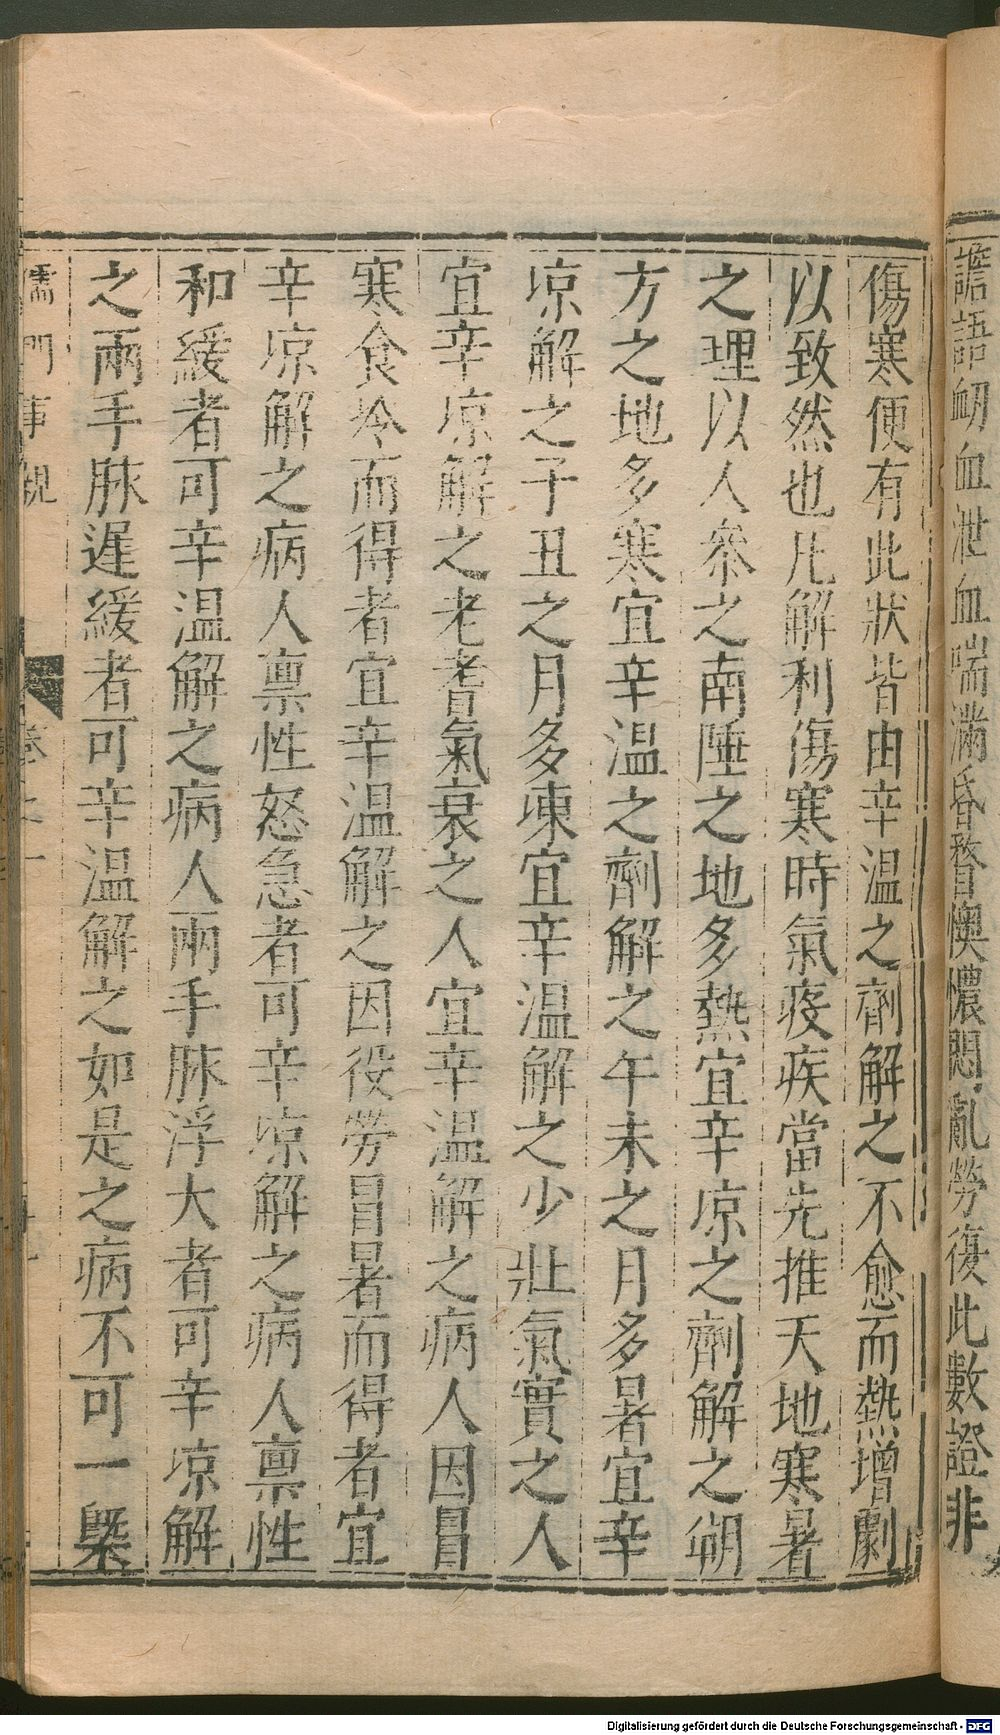 譫語衂血泄血喘滿昏瞀懊憹悶亂勞復此數證非
傷寒便有此狀皆由辛温之劑解之不愈而熱增劇
以致然也凡解利傷寒時氣疫疾當先推天地寒暑
之理以人叅之南陲之地多熱宜辛凉之劑解之朔
方之地多寒宜辛温之劑解之午未之月多暑宜辛
凉解之子丑之月多凍宜辛温解之少壯氣實之人
宜辛凉解之老耆氣衰之人宜辛温解之病人因冒
寒食冷而得者宜辛温解之因役勞冒暑而得者宜
辛凉解之病人禀性怒急者可辛凉解之病人禀性
和緩者可辛温解之病人兩手脉浮大者可辛凉解
之兩手脉遲緩者可辛温解之如是之病不可一槩
儒門事親
卷之一
Digitalisierung gefördert durch die Deutsche Forschungsgemeinschaft - DFG